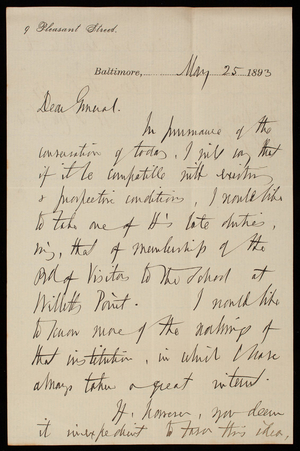 9 Pleasant Street.
Baltimore, May 25 1893
Dear General.
In pursuance of the
conversation of today, I will say that
if it be compatible with existing
& prospective conditions, I would like
to take one of H's late duties,
viz, that of membership of the
Bd of Visitors to the School at
Willetts Point. I would like
to know more of the workings of
that institution, in which I have
always taken a great interest.
If, however, you deem
it inexpedient to favor this idea,